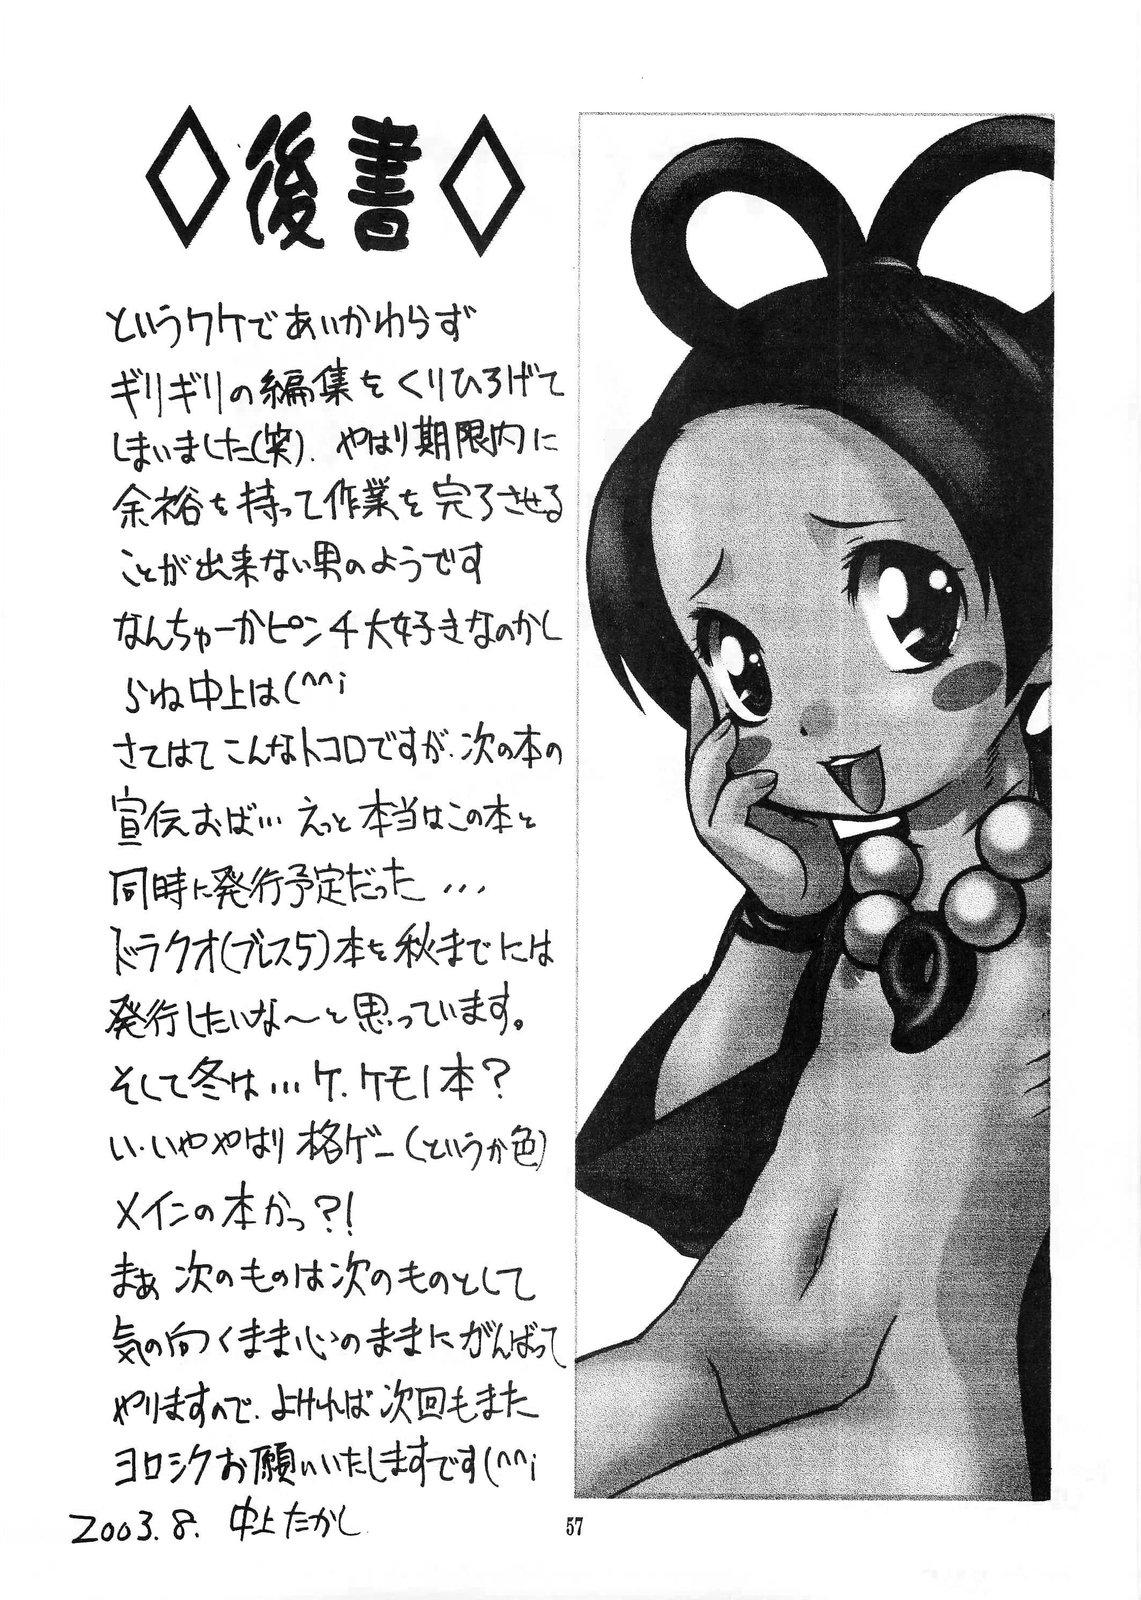 ◇後書◇
というワケであいかわらず
ギリギリの編集をくりひろげて
しまいました(笑). やはり期限内に
余裕を持って作業を完了させる
ことが出来ない男のようです
なんちゅーかピンチ大好きなのかし
らね中上は(^^;
さてはてこんなトコロですが、次の本の
宣伝おば… えっと本当はこの本と
同時に発行予定だった…
ドラクオ(ブレス5)本を秋までには
発行したいな〜と思っています。
そして冬は…ケ、ケモノ本?
い、いややはり格ゲー(というか色)
メインの本かっ?!
まぁ次のものは次のものとして
気の向くまま心のままにがんばって
やりますので、よければ次回もまた
ヨロシクお願いいたしますです(^^;
2003.8. 中上たかし
57